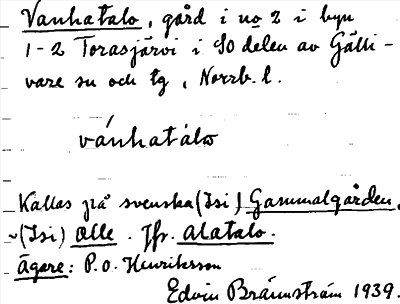 Vanhatalo, gård i no 2 i byn
1-2 Torasjärvi i SO delen av Gälli-
vare sn och tg, Norrb. l.
vánhatálo
Kallas på svenska (Isi) Gammalgården,
~(Isi) Olle. Jfr. Alatalo.
Ägare: P.O. Henriksson
Edvin Brännström 1939.